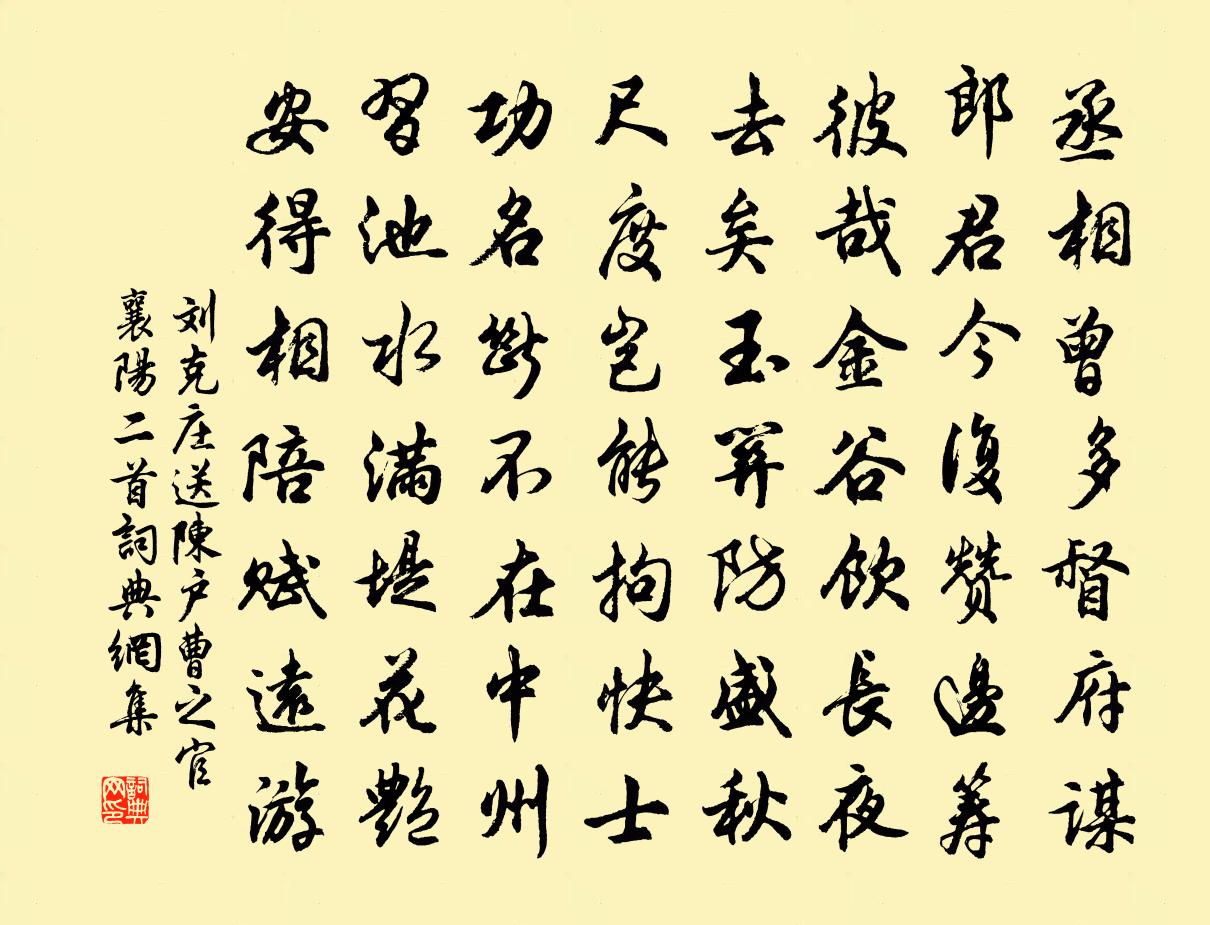 丞相曾多督府謀
郎君今復赞邊筹
彼哉金谷飲長夜
去矣玉關防盛秋
尺度岂能拘快士
功名斷不在中州
習池水滿堤花艷
安得相陪赋遠游
刘克庄送陳户曹之官
襄陽二首詞典網集
詞典
网印